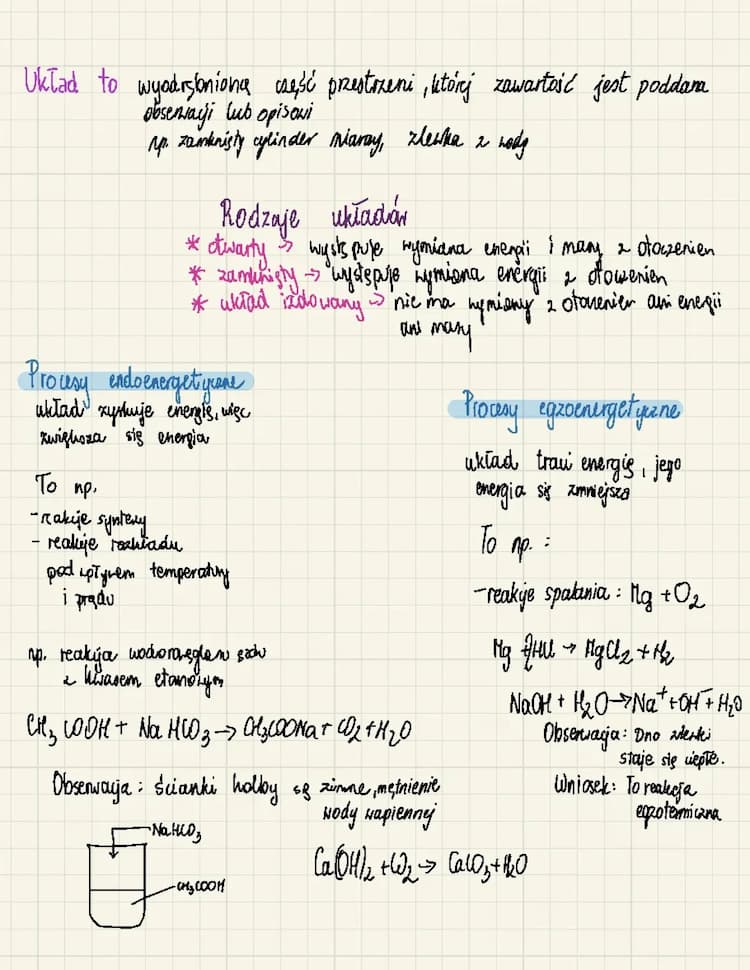 Układ to wyodrębnioną część przestrzeni, której zawartość jest poddana
obserwacji lub opisowi
np. zamknięty cylinder miarowy, zlewka z wodą
Rodzaje układów
* otwarty → występuje wymiana energii i masy z otoczeniem
* zamknięty → występuje wymiana energii z otoczeniem
* układ izolowany → nie ma wymiany z otoczeniem ani energii
ani masy
Procesy endoenergetyczne
układ zyskuje energię, więc
zwiększa się energia
To np.
- reakcje syntezy
- reakcje rozkładu
pod wpływem temperatury
i prądu
np. reakcja wodorowęglanu sodu
z kwasem etanowym
CH3COOH + NaHCO3 → CH3COONa + CO2 + H2O
Obserwacja: ścianki kolby są zimne, mętnienie
wody wapiennej
NaHCO3
CH3COOH
Ca(OH)2 + CO2 → CaCO3 + H2O
Procesy egzoenergetyczne
układ traci energię, jego
energia się zmniejsza
To np.:
- reakcje spalania: Mg + O2
Mg + 2HCl → MgCl2 + H2
NaOH + H2O → Na+ + OH- + H2O
Obserwacja: Dno zlewki
staje się ciepłe.
Wniosek: To reakcja
egzotermiczna